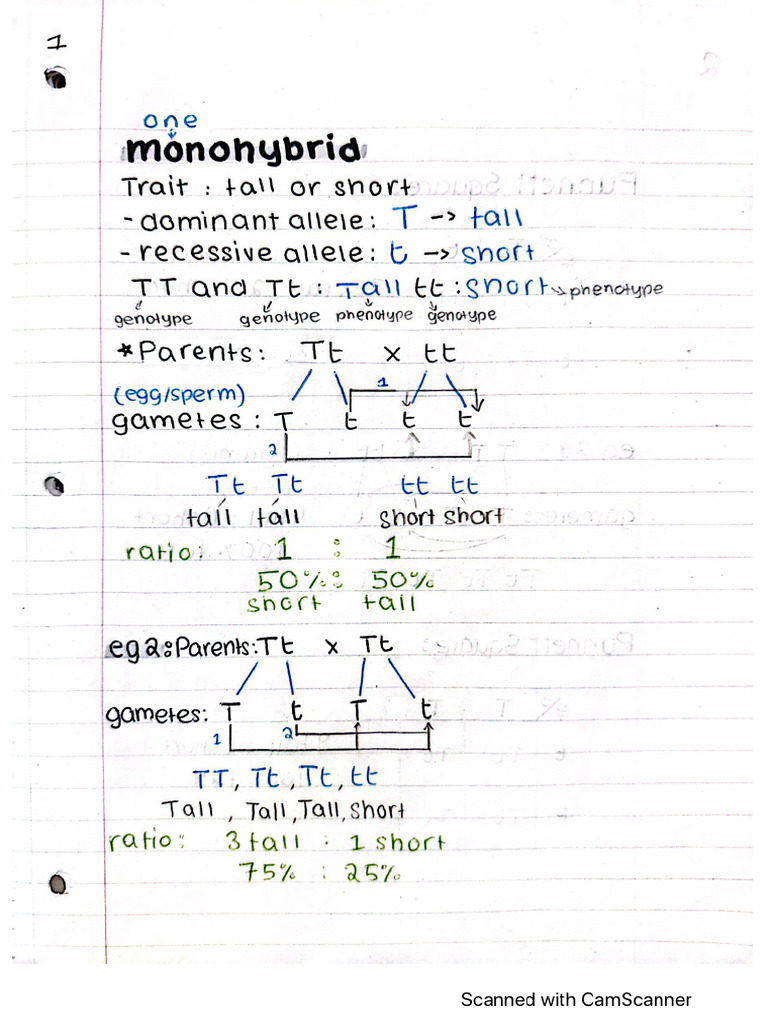 1
one
monohybrid
Trait : tall or short
- dominant allele: T -> tall
- recessive allele: t -> short
TT and Tt : Tall tt : short phenotype
genotype genotype phenotype genotype
*Parents: Tt x tt
(egg/sperm) 1
gametes : T t t t
2
Tt Tt tt tt
tall tall short short
ratio: 1 : 1
50% : 50%
short tall
eg2: Parents: Tt x Tt
gametes: T t T t
1 2
TT, Tt, Tt, tt
Tall, Tall, Tall, short
ratio: 3 tall : 1 short
75% : 25%
Scanned with CamScanner